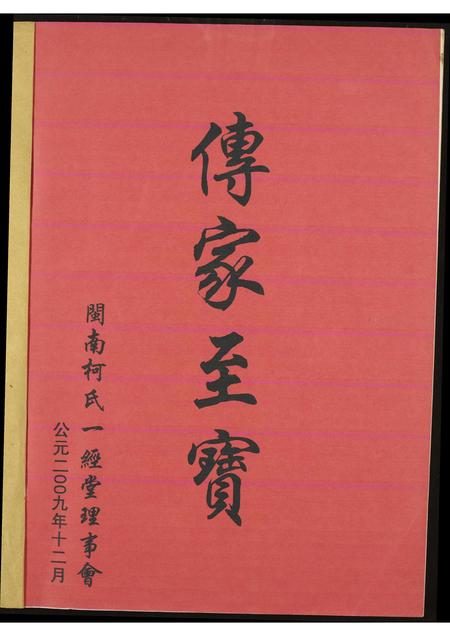 傳家至寶
閩南柯氏一經堂理事會
公元二〇〇九年十二月